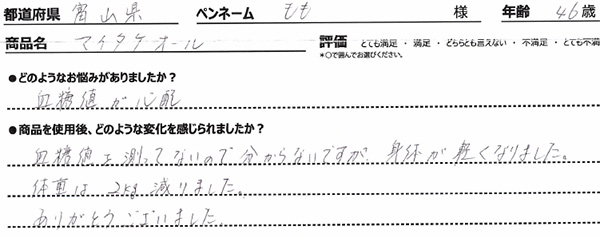 都道府県 富山県 ペンネーム もも 様 年齢 46歳
商品名 マイタケオール 評価 とても満足・満足・どちらとも言えない・不満足・とても不満
*○で囲んでお選びください。
●どのようなお悩みがありましたか？
血糖値が心配
●商品を使用後、どのような変化を感じられましたか？
血糖値を測ってないので分からないですが、身体が軽くなりました。
体重は2kg減りました。
ありがとうございました。